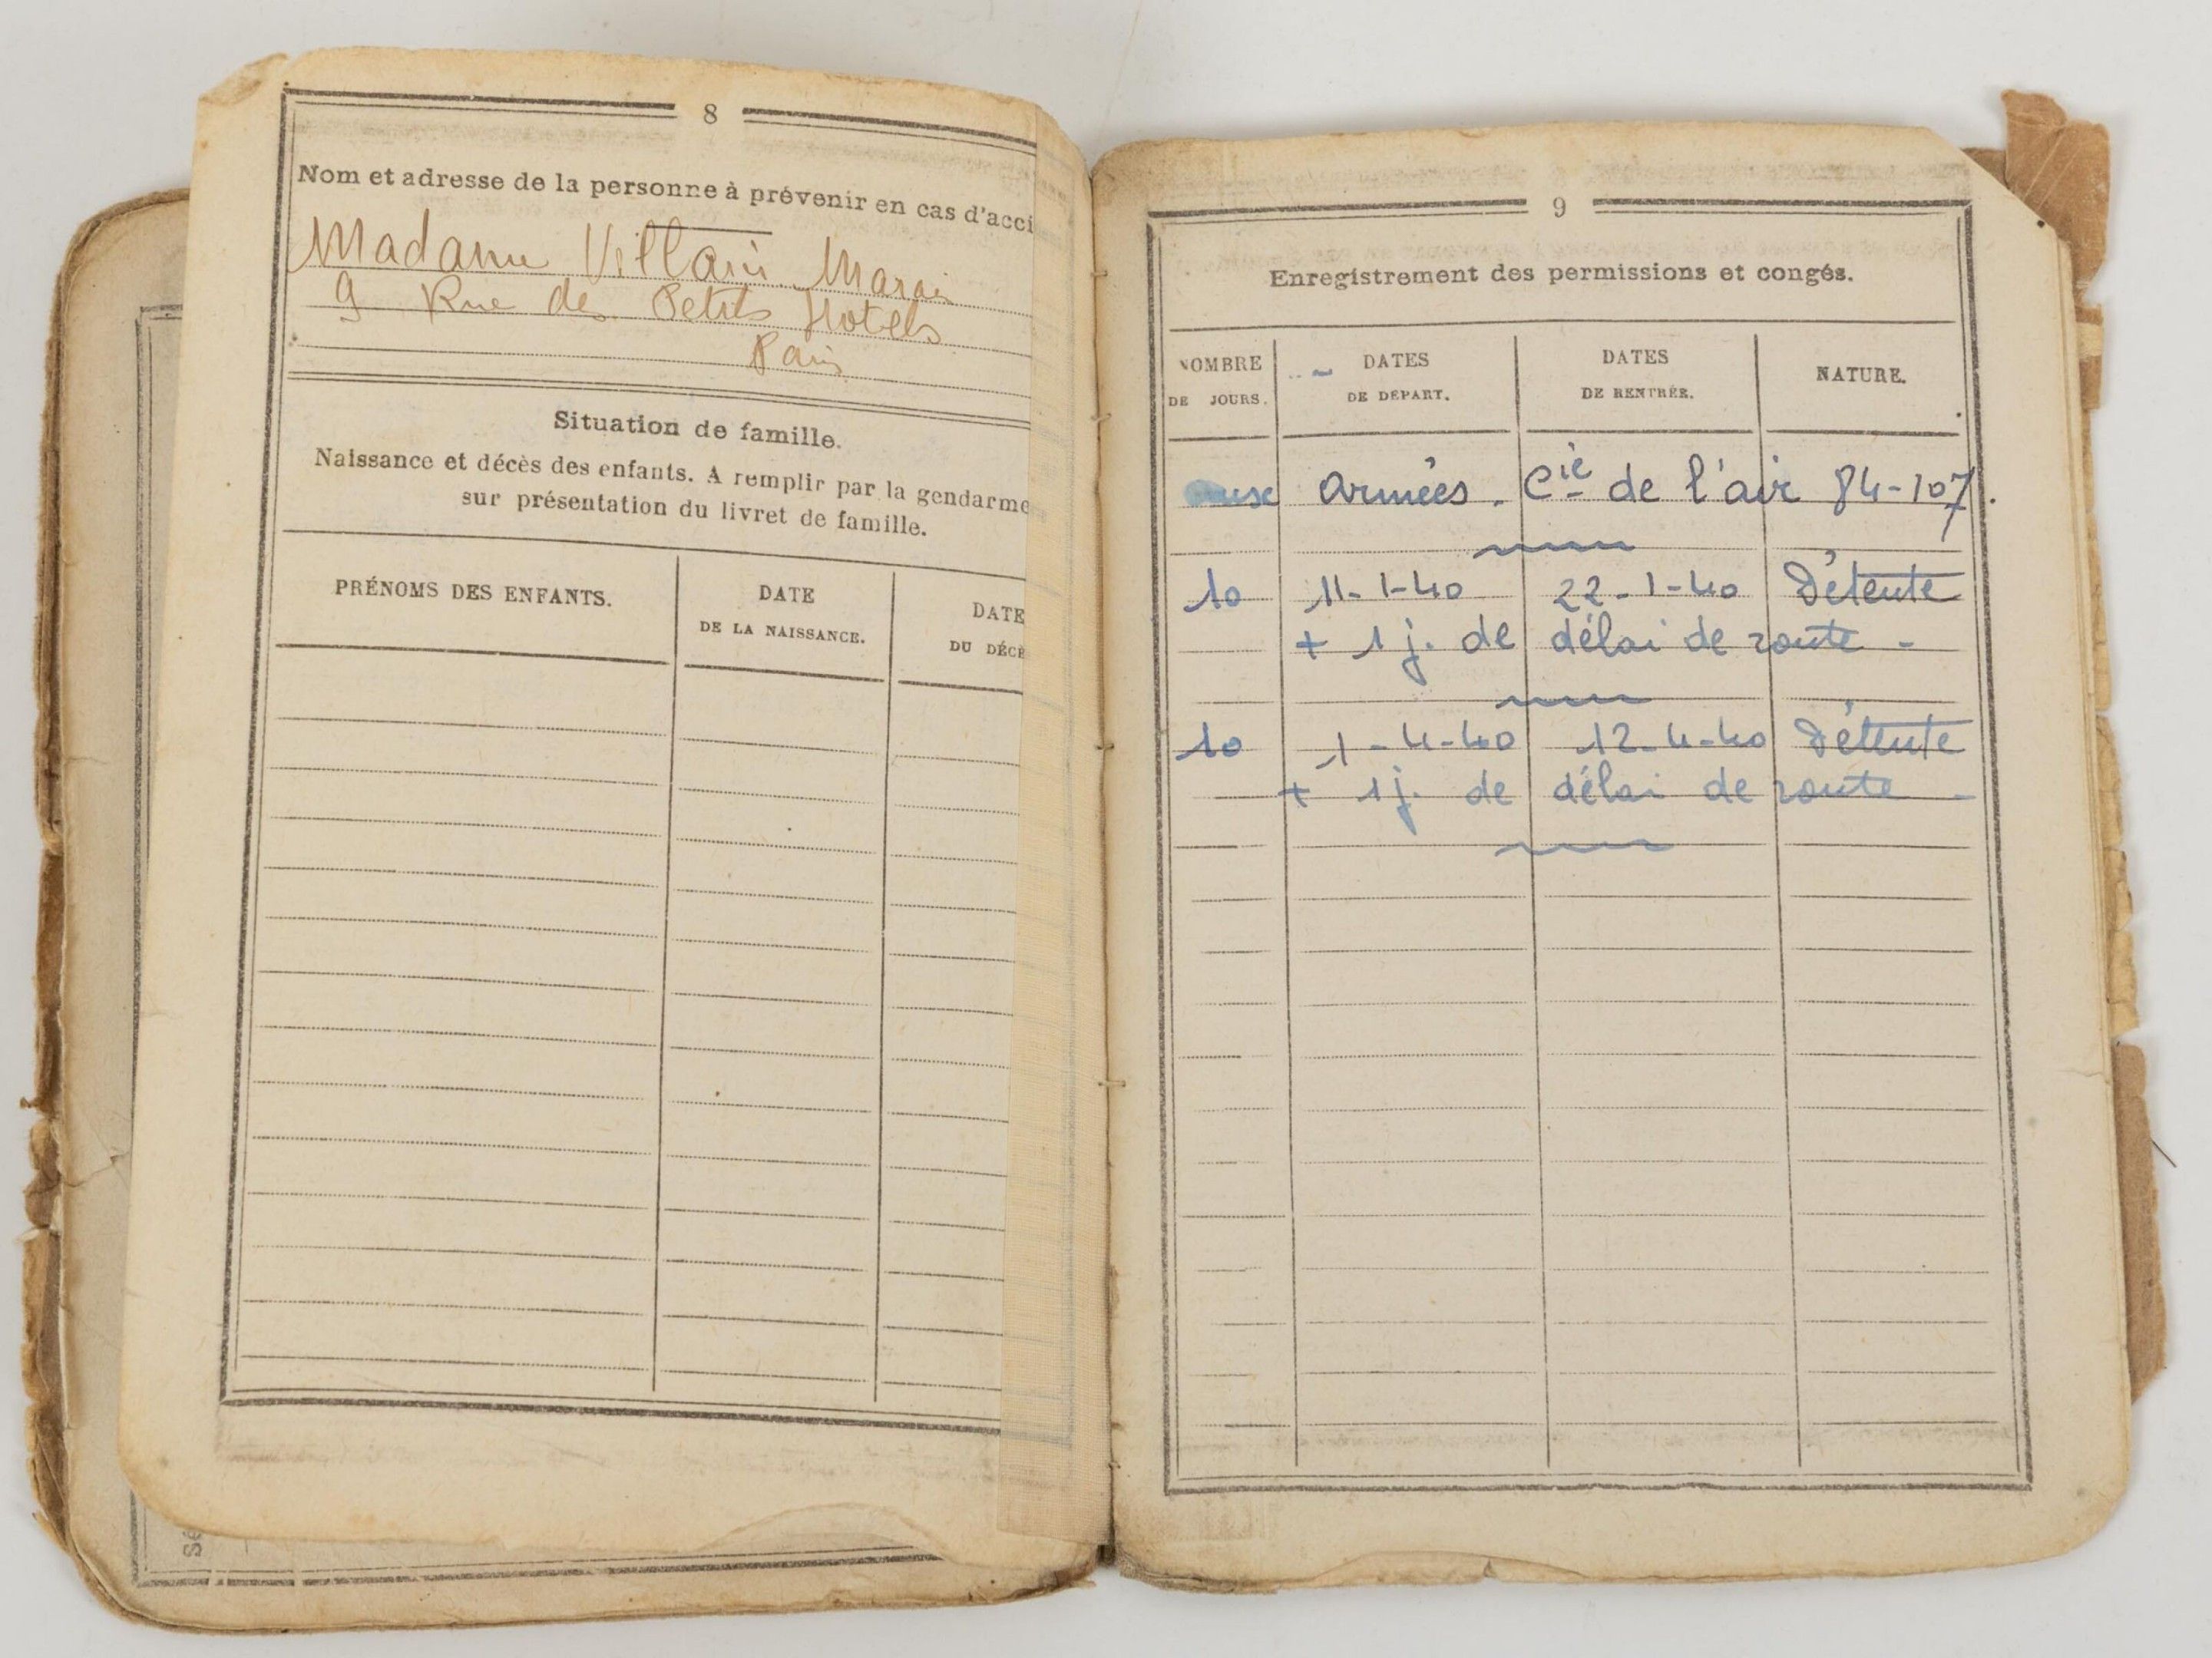 8
Nom et adresse de la personne à prévenir en cas d'acci
Madame Villain
9 Rue des Petits Hotels
Paris
Situation de famille.
Naissance et décès des enfants. A remplir par la gendarme
sur présentation du livret de famille.
PRÉNOMS DES ENFANTS.
DATE
DE LA NAISSANCE.
DATE
DU DÉCÈ
9
Enregistrement des permissions et congés.
NOMBRE
DE JOURS.
DATES
DE DÉPART.
DATES
DE RENTRÉE.
NATURE.
Armées. Cie de l'air 84-107.
10 11-1-40 22-1-40 Détente
+ 1 j. de délai de route -
10 1-4-40 12-4-40 Détente
+ 1 j. de délai de route -
Sé